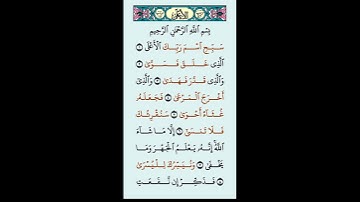 الأعلى
بِسْمِ ٱللَّهِ ٱلرَّحْمَٰنِ ٱلرَّحِيمِ
سَبِّحِ ٱسْمَ رَبِّكَ ٱلْأَعْلَى ۝
ٱلَّذِى خَلَقَ فَسَوَّىٰ ۝
وَٱلَّذِى قَدَّرَ فَهَدَىٰ ۝ وَٱلَّذِىٓ
أَخْرَجَ ٱلْمَرْعَىٰ ۝ فَجَعَلَهُۥ
غُثَآءً أَحْوَىٰ ۝ سَنُقْرِئُكَ
فَلَا تَنسَىٰٓ ۝ إِلَّا مَا شَآءَ
ٱللَّهُ إِنَّهُۥ يَعْلَمُ ٱلْجَهْرَ وَمَا
يَخْفَىٰ ۝ وَنُيَسِّرُكَ لِلْيُسْرَىٰ
۝ فَذَكِّرْ إِن نَّفَعَتِ